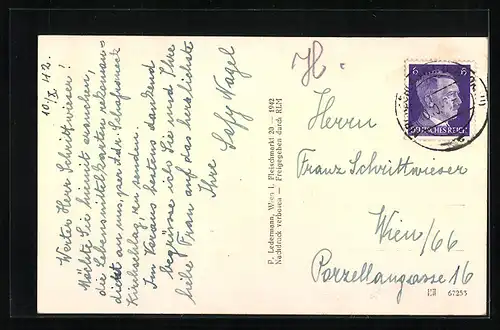 10/X. 42.
Werter Herr Schrittwieser!
Möchte Sie hiermit ersuchen,
die Lebensmittelkarten rekoman-
dirt an uns, per Adr. Schafroneck
Kirchschlag, zu senden.
Im Voraus bestens dankend
begrüsse ich Sie und Ihre
liebe Frau auf das herzlichste
Ihre
Sefy Nagel
P. Ledermann, Wien I, Fleischmarkt 20 — 1942
Nachdruck verboten — Freigegeben durch RLM
H.
6 6
DEUTSCHES REICH
Herrn
Franz Schrittwieser
Wien/66
Porzellangasse 16
67255